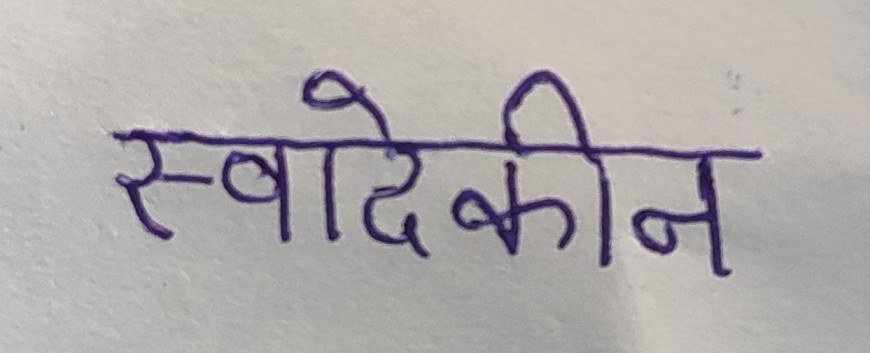 स्वादेकीन